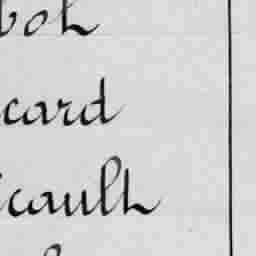 boh
card
icault